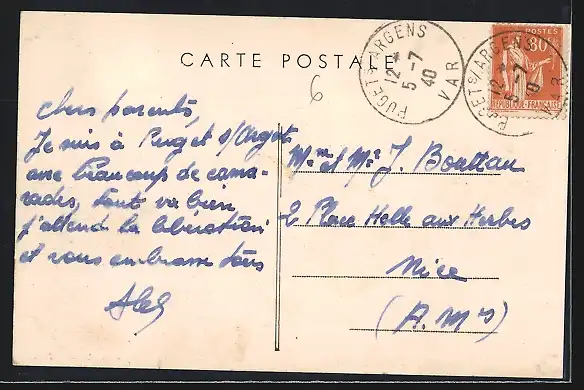 CARTE POSTALE
PUGET S/ARGENS
12 *
5 - 7
40
VAR
PUGET S/ARGENS
12 *
5 - 7
VAR
POSTES
80
REPUBLIQUE-FRANÇAISE
6
chers parents,
Je suis à Puget s/Argens
avec beaucoup de cama-
rades, tout va bien
j'attend la libération
et vous embrasse tous
Mme et Mr J. Bouttau
2 Place Halle aux Herbes
Nice
(A. Mes)